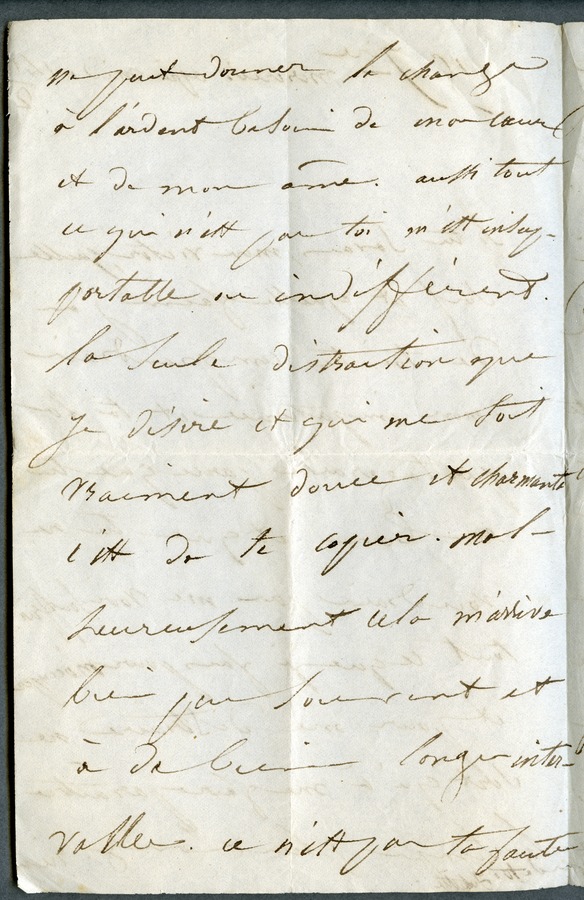 ne peut donner le change
à l'ardent besoin de mon cœur
et de mon âme. aussi tout
ce qui n'est pas toi m'est insup-
portable ou indifférent.
la seule distraction que
je désire et qui me soit
vraiment douce et charmante
c'est de te copier. mal-
heureusement cela m'arrive
bien peu souvent et
à de bien longs inter-
valles. ce n'est pas ta faute